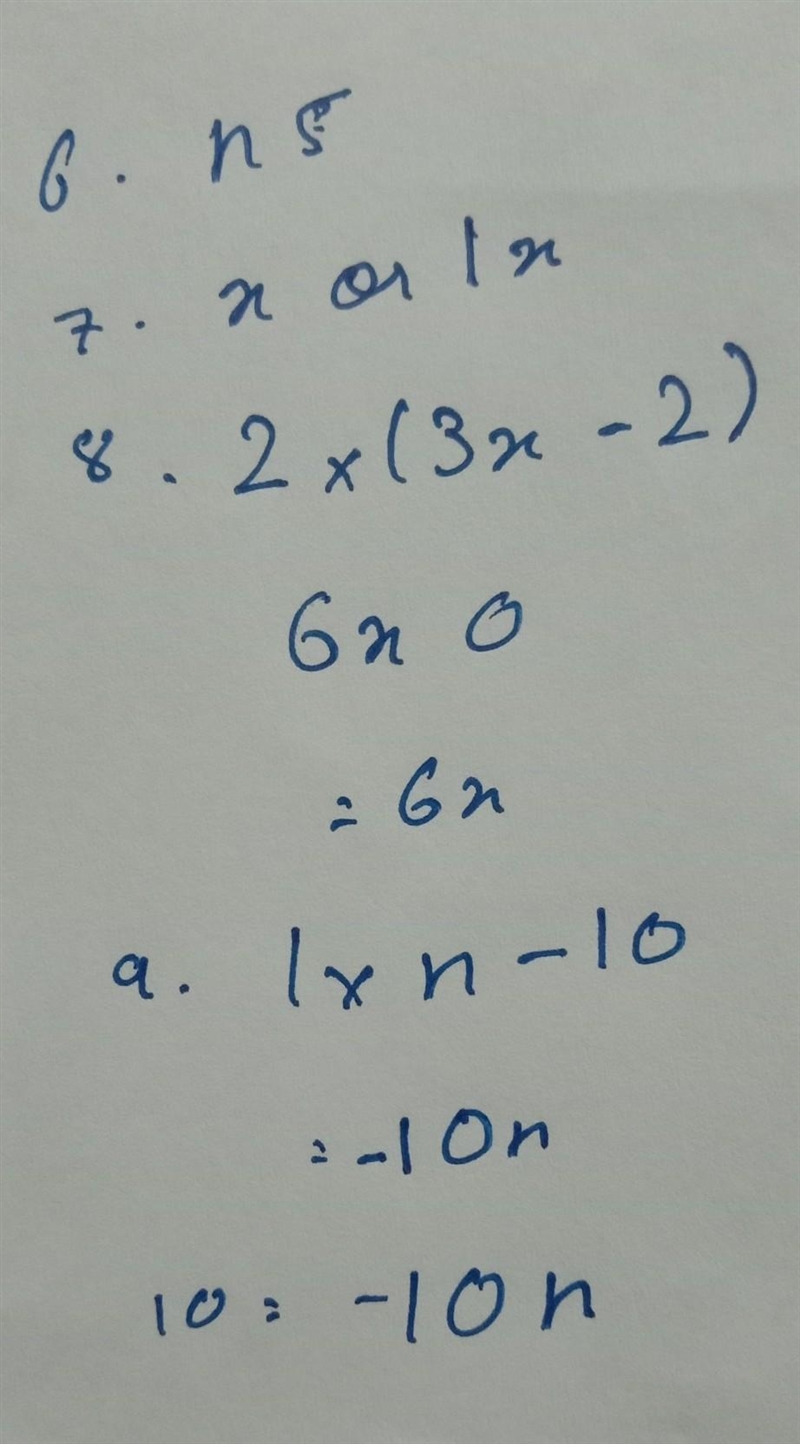 6. n 5
7. x or 1x
8. 2 x (3x - 2)
6x 0
= 6x
9. 1 x n - 10
= -10n
10 = -10n